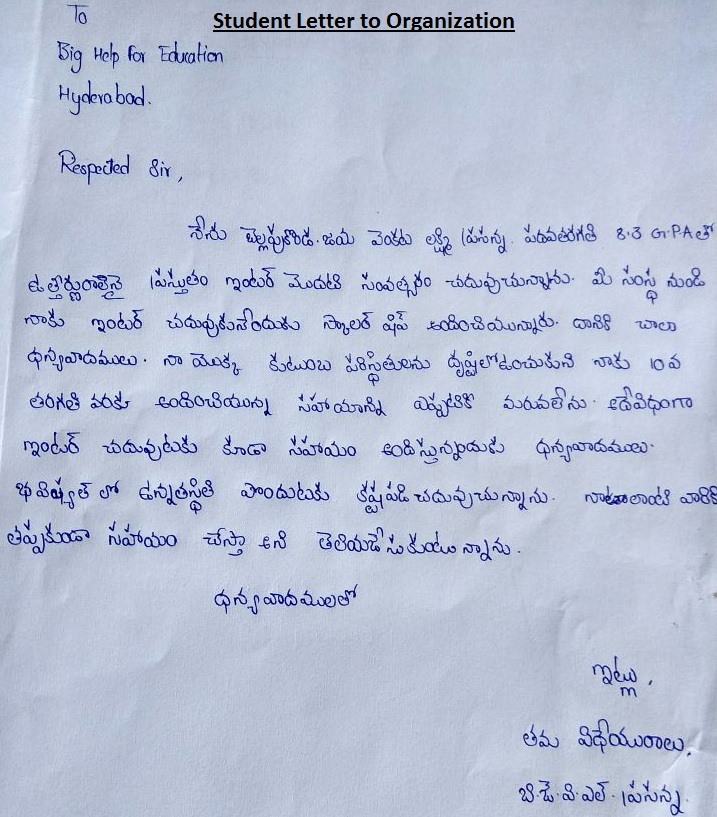 Student Letter to Organization
To
Big Help For Education
Hyderabad.
Respected Sir,
నేను బెల్లపుకొండ. జయ వెంకట లక్ష్మి ప్రసన్న. పదవతరగతి 8.3 G.PA తో
ఉత్తీర్ణురాలినై ప్రస్తుతం ఇంటర్ మొదటి సంవత్సరం చదువుచున్నాను. మీ సంస్థ నుండి
నాకు ఇంటర్ చదువుకునేందుకు స్కాలర్ షిప్ అందించియున్నారు. దానికి చాలా
ధన్యవాదములు. నా యొక్క కుటుంబ పరిస్థితులను దృష్టిలో ఉంచుకుని నాకు 10వ
తరగతి వరకు అందించియున్న సహాయాన్ని ఎప్పటికి మరువలేను. అదేవిధంగా
ఇంటర్ చదువుటకు కూడా సహాయం అందిస్తున్నందుకు ధన్యవాదములు.
భవిష్యత్ లో ఉన్నతస్థితి పొందుటకు కష్టపడి చదువుచున్నాను. నాలాంటి వారికి
తప్పకుండా సహాయం చేస్తా అని తెలియజేసుకుంటున్నాను.
ధన్యవాదములతో
ఇట్లు,
తమ విధేయురాలు,
బి.జె.వి.ఎల్. ప్రసన్న.